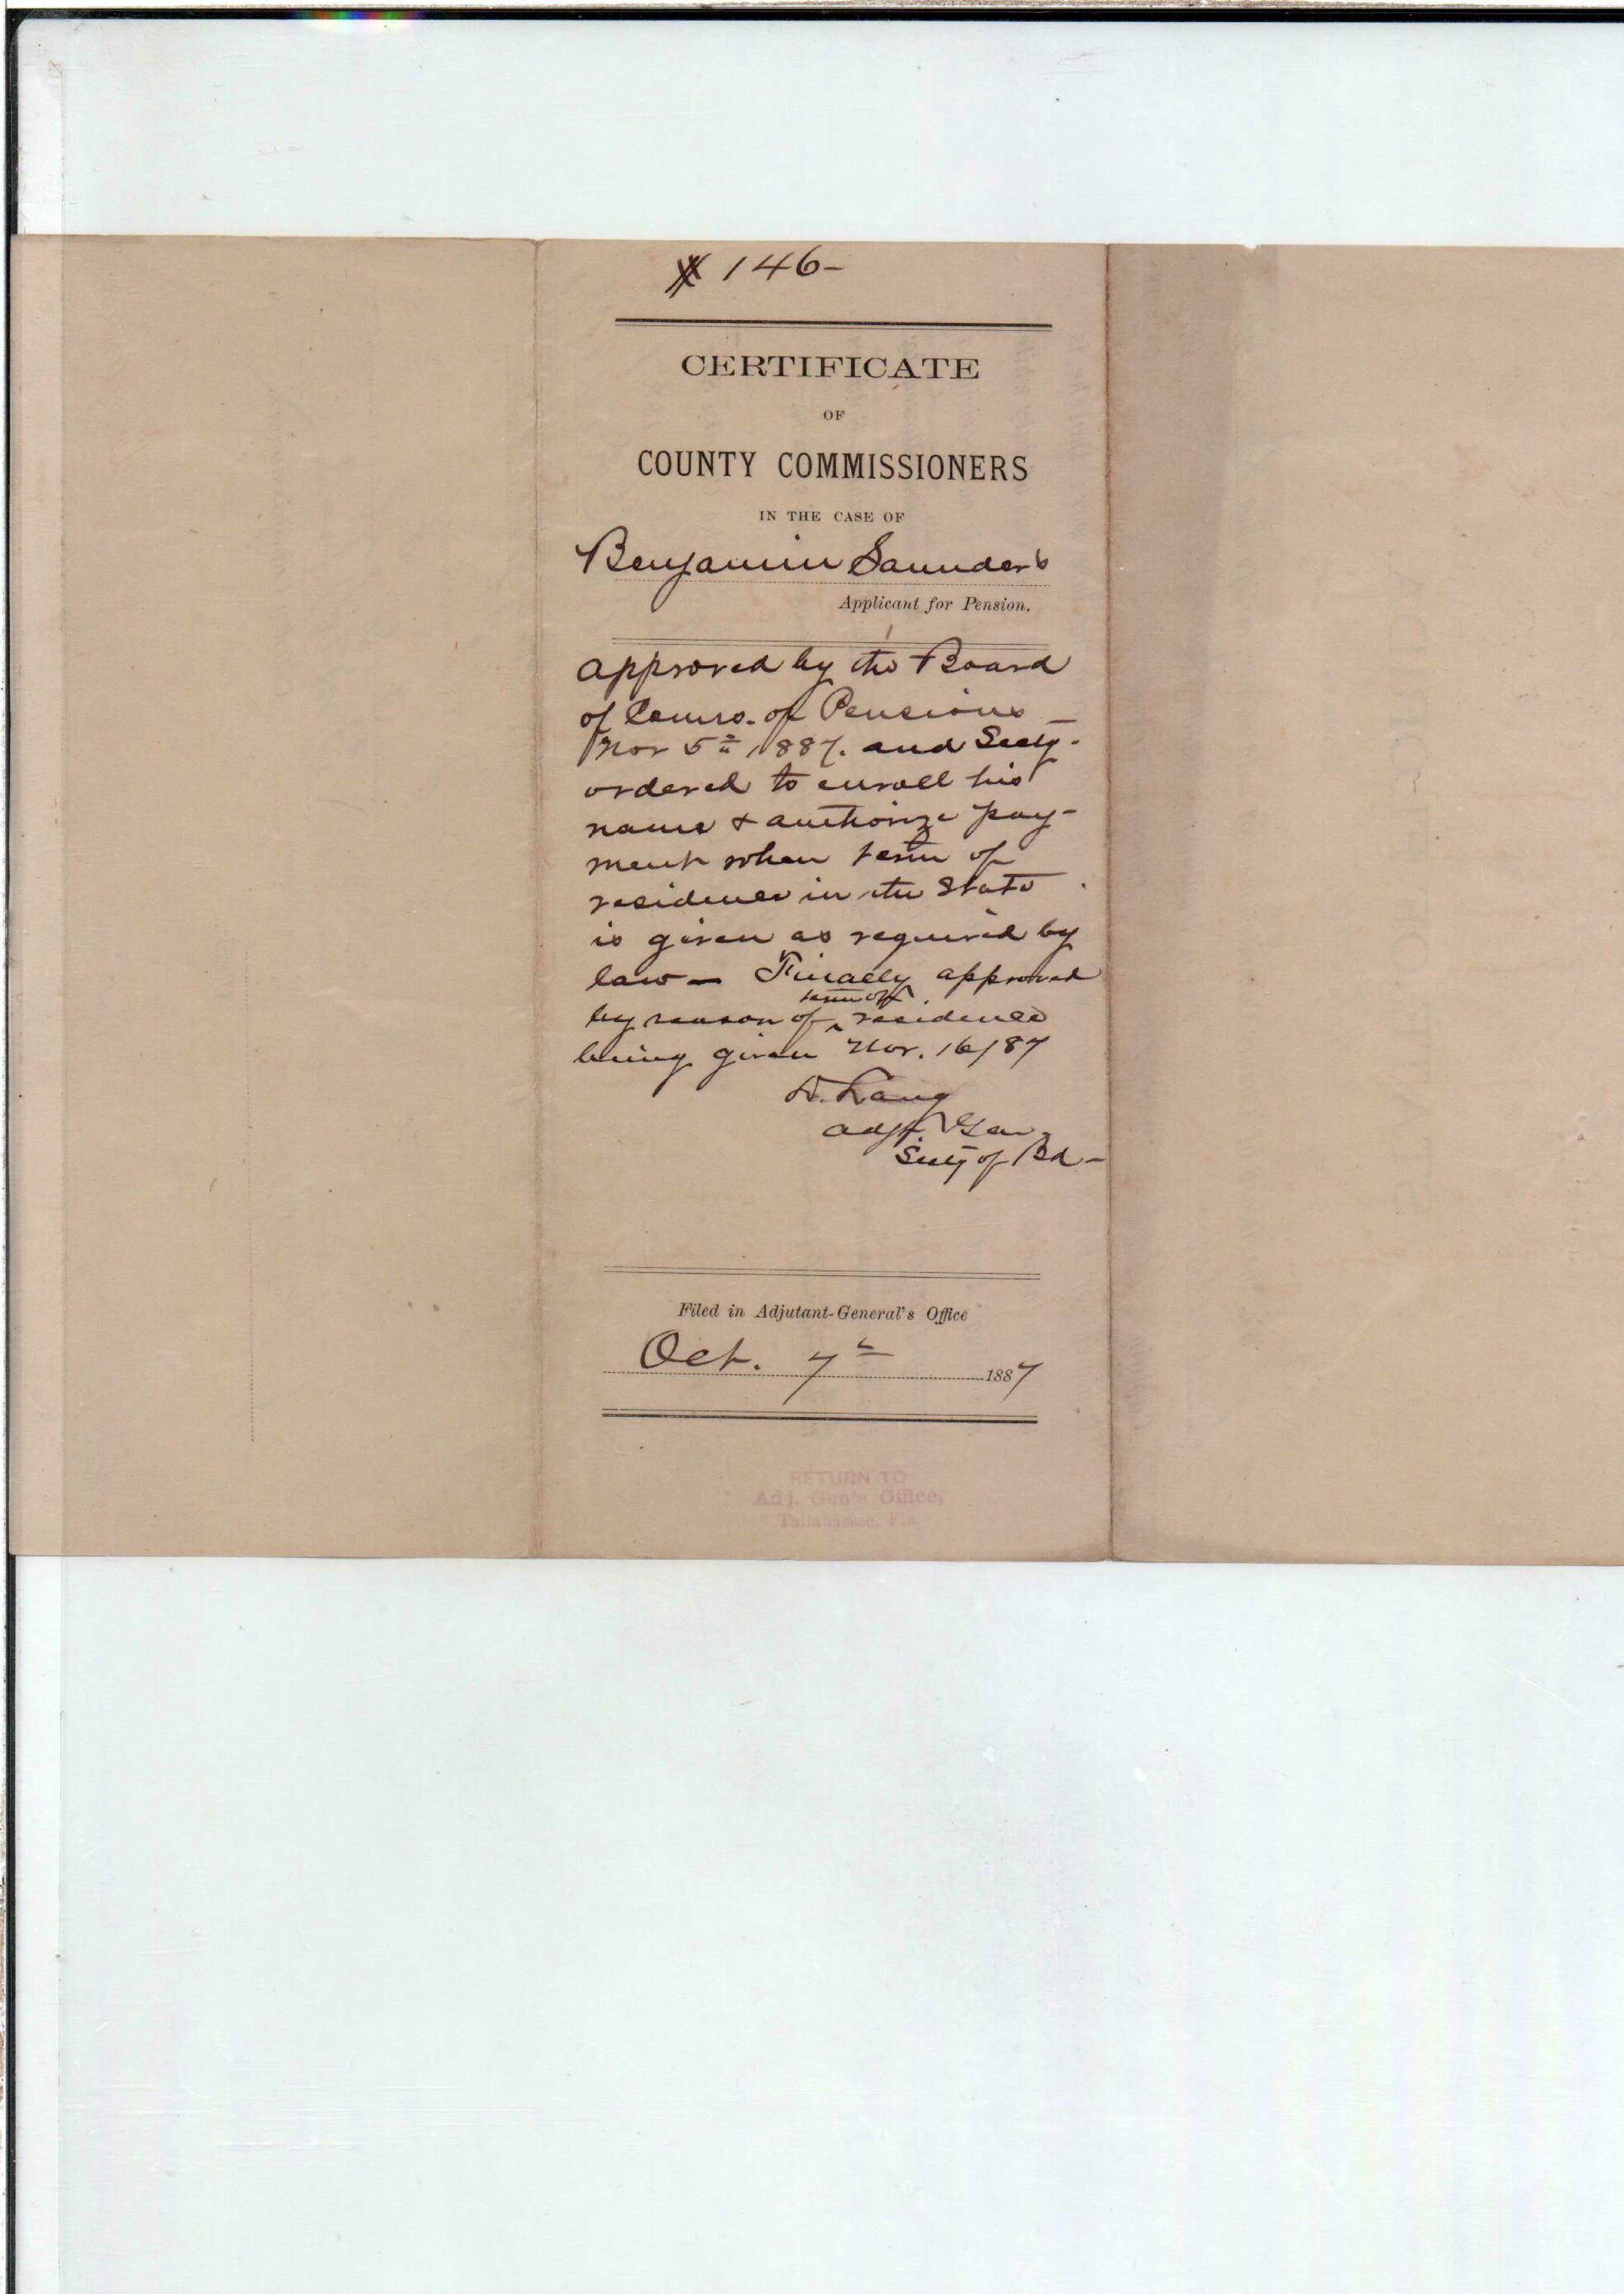 # 146-
CERTIFICATE
OF
COUNTY COMMISSIONERS
IN THE CASE OF
Benjamin Saunders
Applicant for Pension.
approved by the Board
of Comrs. of Pensions -
Nov 5th 1887. and Secty.
ordered to enroll his
name & authorize pay-
ment when term of
residence in the State
is given as required by
law - Finally approved
term of
by reason of ^ residence
being given Nov. 16/87
D. Lang
adjt. Gen.
Secty of Bd-
Filed in Adjutant-General's Office
Oct. 7th 1887
RETURN TO
Adj. Gen's Office,
Tallahassee, Fla.